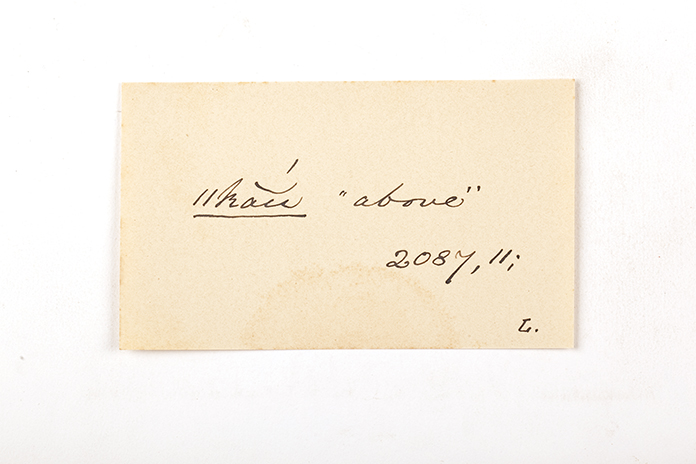 ǁkău̍ "above"
2087, 11;
L.